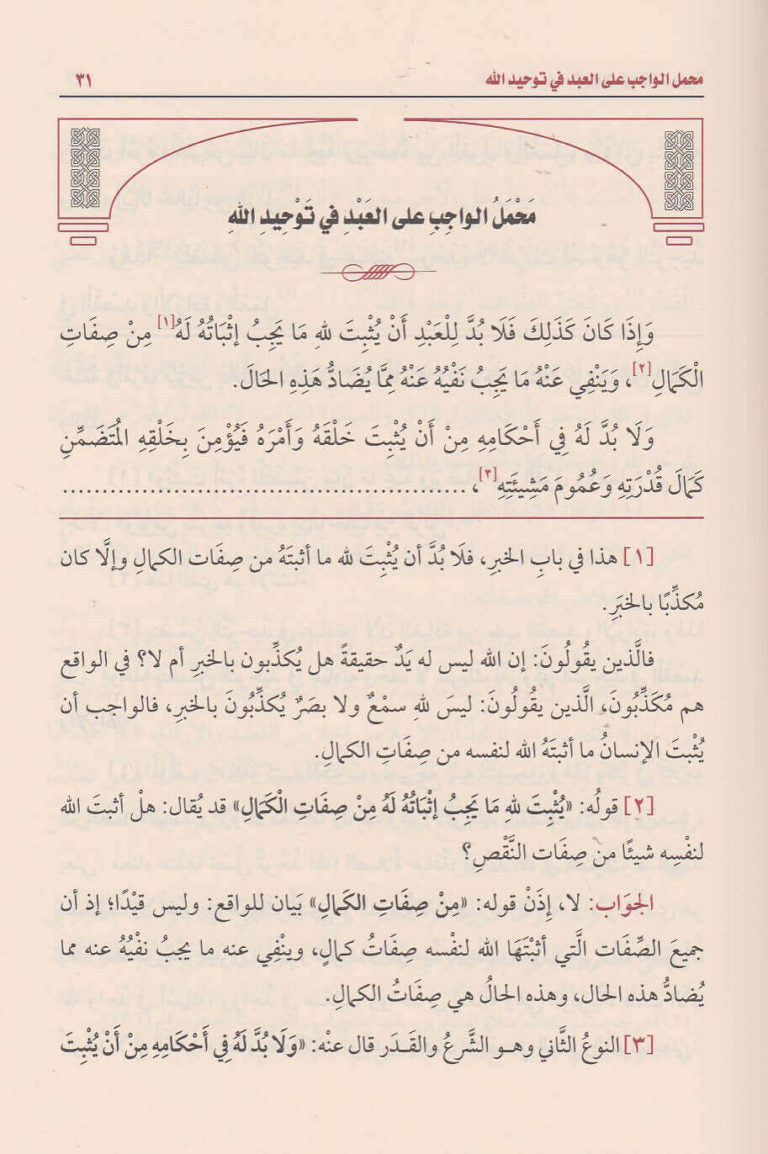 محمل الواجب على العبد في توحيد الله ٣١
مَحْمَلُ الواجِبِ على العَبْدِ في تَوْحِيدِ اللهِ
وَإِذَا كَانَ كَذَلِكَ فَلَا بُدَّ لِلْعَبْدِ أَنْ يُثْبِتَ للهِ مَا يَجِبُ إثْبَاتُهُ لَهُ[١] مِنْ صِفَاتِ
الْكَمَالِ[٢]، وَيَنْفِي عَنْهُ مَا يَجِبُ نَفْيُهُ عَنْهُ مِمَّا يُضَادُّ هَذِهِ الحَالَ.
وَلَا بُدَّ لَهُ فِي أَحْكَامِهِ مِنْ أَنْ يُثْبِتَ خَلْقَهُ وَأَمْرَهُ فَيُؤْمِنَ بِخَلْقِهِ المُتَضَمِّنِ
كَمَالَ قُدْرَتِهِ وَعُمُومَ مَشِيئَتِهِ[٣]، ..................................................
[١] هذا في بابِ الخبرِ، فلَا بُدَّ أن يُثْبِتَ لله ما أثبتَهُ من صِفَات الكمالِ وإلَّا كان
مُكذِّبًا بالخبَرِ.
فالَّذين يقُولُونَ: إن الله ليس له يَدٌ حقيقةً هل يُكذِّبون بالخبرِ أم لا؟ في الواقع
هم مُكَذِّبُونَ، الَّذين يقُولُونَ: ليسَ للهِ سمْعٌ ولا بصَرٌ يُكذِّبُونَ بالخبرِ، فالواجب أن
يُثْبتَ الإنسانُ ما أثبتَهُ الله لنفسه من صِفَاتِ الكمالِ.
[٢] قولُه: «يُثْبِتَ للهِ مَا يَجِبُ إثْبَاتُهُ لَهُ مِنْ صِفَاتِ الْكَمَالِ» قد يُقال: هلْ أثبتَ الله
لنفْسِه شيئًا من صِفَات النَّقْصِ؟
الجوَاب: لا، إِذَنْ قوله: «مِنْ صِفَاتِ الكَمَالِ» بَيان للواقع: وليس قيْدًا؛ إذ أن
جميعَ الصِّفَات الَّتي أثبْتَهَا الله لنفْسه صِفَاتُ كمالٍ، وينْفِي عنه ما يجبُ نفْيُهُ عنه مما
يُضادُّ هذه الحال، وهذه الحالُ هي صِفَاتُ الكمالِ.
[٣] النوعُ الثَّاني وهـو الشَّرعُ والقَـدَر قال عنْه: «وَلَا بُدَّ لَهُ فِي أَحْكَامِهِ مِنْ أَنْ يُثْبِتَ